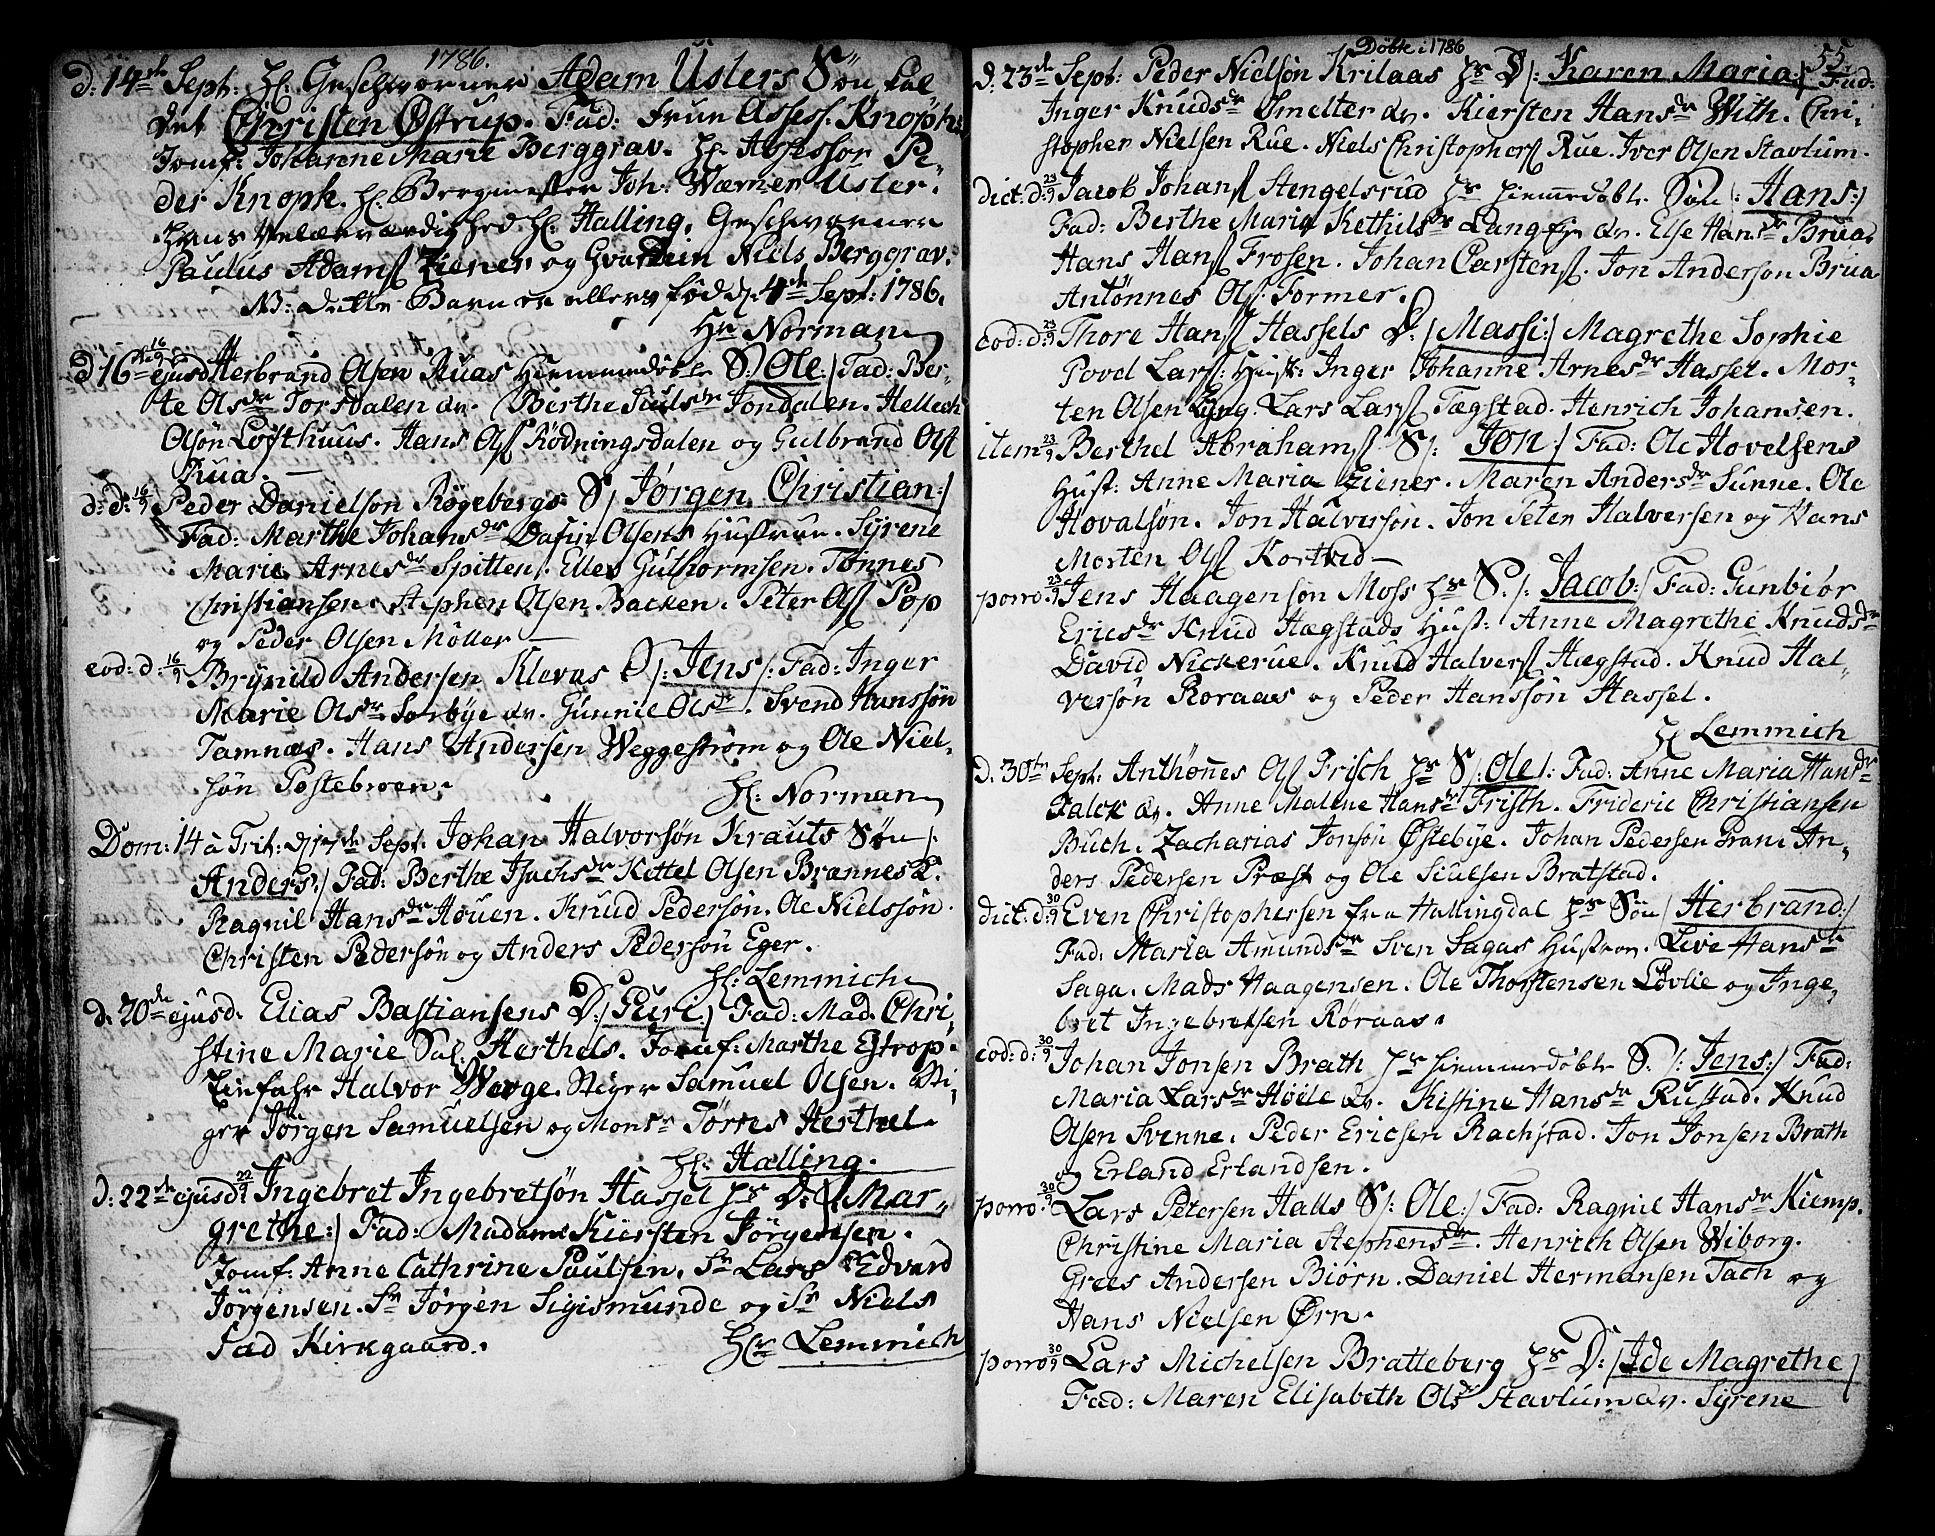 1786.
d: 14de Sept: H: Geschworner Adam Üslers Sön kal
det Christen Östrup. Fad: Frue Assess. Knoph.
Jomf: Johanne Marie Berggrav. H: Assessor Pe-
der Knoph. H: Bergmester Joh: Wærner Usler.
Hans Velærværdighed H: Halling. Geschworner
Paulus Adams: Ziener og Gvardein Niels Berggrav.
NB: dette Barn er allene föd d. 4de Sept: 1786.
Hr Norman
d 16de 16/9 ejusd Herbrand Olsen Ruas Hiemmedöbte S: Ole:/ Fad: Ber-
te Olsdr Torsdalen dr. Berthe Siulsdr Jondalen. Hellech
Olsön Lofthuus. Hans Ols: Rödningsdalen og Gulbrand Ols:
Rua. —
d: d: 16/9 Peder Danielsön Rögebergs S/ Jörgen Christian:/
Fad: Marthe Johansdr Dafin Olsens Hustrue. Syrene
Marie Arnesdr Spitten. Elles Guthormsen. Tönnes
Christiansen. Stephen Olsen Backen. Peter Ols: Pop
og Peder Olsen Möller —
eod: d: 16/9 Brynild Andersen Klevas S/: Jens/: Fad: Inger
Marie Olsdr Sorbye dr. Gunnil Olsdr. Svend Hanssön
Tamnæs. Hans Andersen Weggeström og Ole Niel-
sön Postebroen.
H: Norman
Dom: 14 à Trit: d 17de Sept. Johan Halvorsön Krauts Sön/:
Anders:/ Fad: Berthe Isachsdr Kittel Olsen Brannes K.
Ragnil Hansdr Houen. Knud Pedersön. Ole Nielssön
Christen Pedersön og Anders Pedersön Eger.
H: Lemmich
d. 20de ejusd. Elias Bastiansens D:/ Puri:/ Fad: Mad. Chri-
stine Marie Sal. Herthels. Jomf: Marthe Estrop.
Einfahr Halvor Werge. Stiger Samuel Olsen. Sti-
ger Jörgen Samuelsen og Monsr Törres Herthel.
H: Halling.
d: 22de ejusd 22/9 Ingebret Ingebretsön Hassel hs D:/ Mar-
grethe:/ Fad: Madame Kiersten Jörgensen.
Jomf: Anne Cathrine Paulsen. Sr Lars Edvard
Jörgensen. Sr Jörgen Sigismunde og Sr Niels
Fad Kirkgaard.
Hr Lemmich
Döbte i 1786
55.
d: 23de Sept: Peder Nielsön Krilaas hs D/: Karen Maria:/ Fad:
Inger Knudsdr Smelter dr. Kiersten Hansdr With. Chri-
stopher Nielsen Rue. Niels Christophers: Rue. Iver Olsen Stavlum.
dict: d: 23/9 Jacob Johans: Stengelsrud hs hiemmedöbte Sön/: Hans:/
Fad: Berthe Maria Kethilsdr Langey dr. Else Hansdr Brua.
Hans Hans: Frosen. Johan Carstens:. Jon Anderson Brua
Antönnes Ols: Former.
eod: d: 23/9 Thore Hans: Hassels D:/ Massi:/ Magrethe Sophie
Povel Lars: Hust: Inger Johanne Arnesdr Hassel. Mor-
ten Olsen Lyng. Lars Lars: Tægstad. Henrich Johansen.
item 23/9 Berthel Abrahams: S/: Jon:/ Fad: Ole Hovelsens
Hust: Anne Maria Ziener. Maren Andersdr Sunne. Ole
Hovalsön. Jon Halversön. Jon Peter Halversen og Hans
Morten Ols: Kortrid —
porro: 23/9 Jens Haagensön Moss hs S./: Jacob:/ Fad: Gunbiör
Ericsdr Knud Hægstads Hust: Anne Magrethe Knudsdr
David Nickerue. Knud Halvers: Hægstad. Knud Hal-
versön Roraas og Peder Hanssön Hassel.
H Lemmich
d. 30te Sept: Anthönnes Ols: Frisch hs S/: Ole/: Fad: Anne Maria Hansdr
Falck dr. Anne Malene Hansdr Frisch. Frideric Christiansen
Buch. Zacharias Jonsön Östebye. Johan Pedersen Pran. An-
ders Pedersen Præst og Ole Siulsen Bratstad.
dict: d: 30/9 Even Christophersen fra Hallingdal hs Sön/ Herbrand:/
Fad: Maria Amundsdr Sven Sagas Hustrue. Live Hansdr
Saga. Mads Haagensen. Ole Thorstensen Lövlie og Inge-
bret Ingebretsen Röraas.
eod: d: 30/9 Johan Jonsen Brath hs hiemmedöbte S./: Jens:/ Fad:
Maria Larsdr Höile dr. Kistine Hansdr Rustad. Knud
Olsen Svenne. Peder Ericsen Rachstad. Jon Jonsen Brath
og Erland Erlandsen.
porro: 30/9 Lars Petersen Halls S/: Ole:/ Fad: Ragnil Hansdr Kiemp.
Christine Maria Stephensdr. Henrich Olsen Wiborg.
Grees Andersen Biörn. Daniel Hermansen Tach og
Hans Nielsen Örn.
porro 30/9 Lars Michelsen Bratteberg hs D:/ Ide Magrethe/
Fad: Maren Elisabeth Olsdr Stavlum dr. Syrene